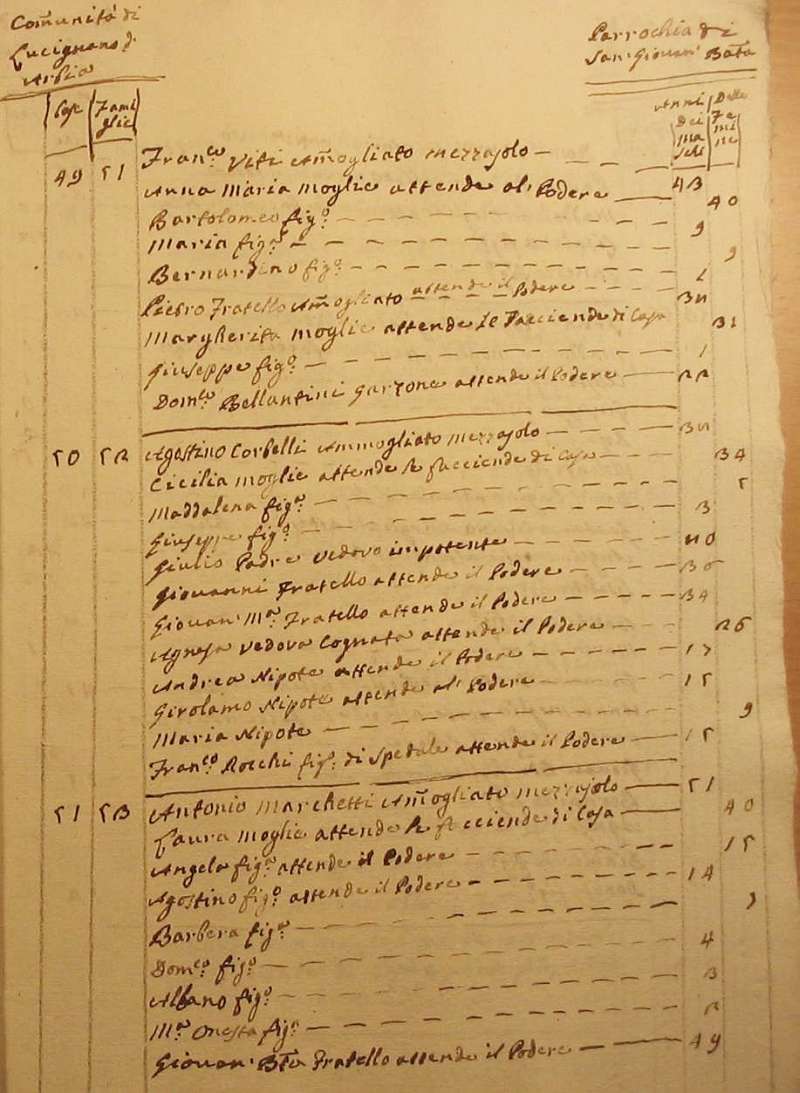 Com̃unità di
Lucignano d'
Arbia
Parrochia di
San Giovan' Bat̃a
Case
Fami
glie
Anni
Dei
Ma
schi
Delle
Fe
mi
ne
49 51 Fran.co Viti Am̃ogliato Mezzajolo — 43
Anna Maria Moglie attende al' Podere — 40
Bartolomeo fig.o — 9
Maria fig.a — 9
Bernardino fig.o —
Pietro Fratello Am̃ogliato attende il Podere —
Margherita Moglie attende le Facciende di Casa 31
Giuseppe fig.o — 1
Dom.co Bellantini Garzone attende il Podere — 22
50 52 Agostino Corbelli Ammogliato Mezzajolo —
Cicilia Moglie attende le facciende di Casa — 34
Maddalena fig.a — 5
Giuseppe fig.o — 3
Giulio Padre Vedovo impotente —
Giovanni Fratello attende il Podere —
Giovan' M.a Fratello attende il Podere — 34
Agnesa Vedova Cognata attende il Podere —
Andrea Nipote attende il Podere — 17
Girolamo Nipote attende al' Podere — 15
Maria Nipote — 9
Fran.co Rocchi fig.o di Spedale attende il Podere — 15
51 53 Antonio Marchetti Am̃ogliato Mezzajolo — 51
Laura Moglie attende le facciende di Casa — 40
Angela fig.a attende il Podere — 15
Agostino fig.o attende il Podere — 14
Barbera fig.a —
Dom.co fig.o — 4
Albano fig.o — 3
M.a Onesta fig.a — 2
Giovan' Bat̃a Fratello attende il Podere — 49